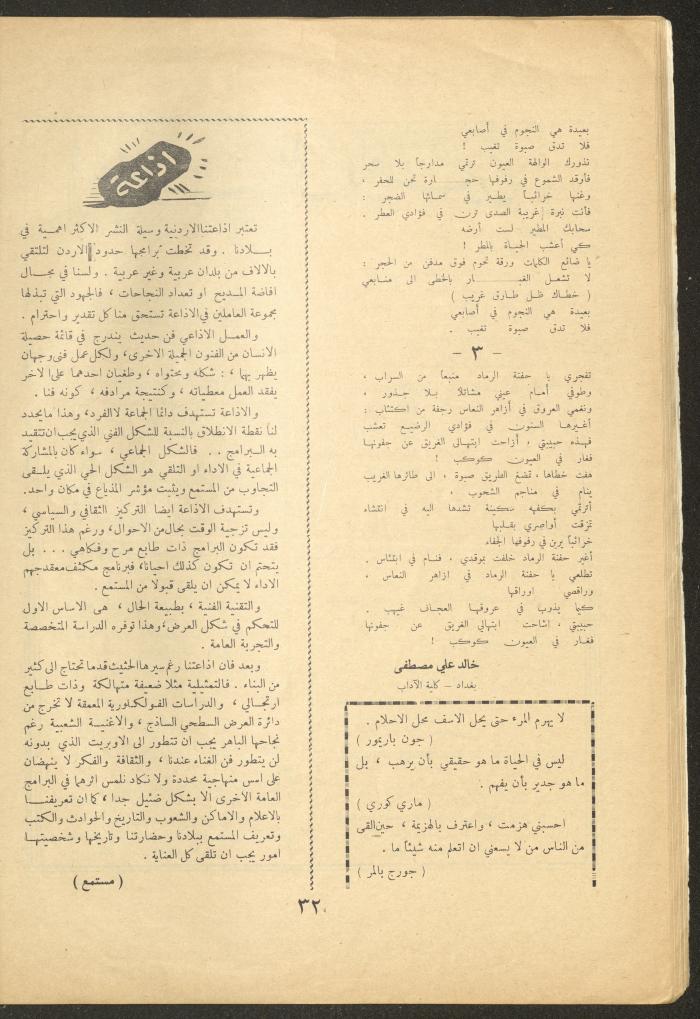 بعيدة هي النجوم في أصابعي
فلا تدق صبوة تغيب !
تذورك الوالهة العيون ترتمي مدارجاً بلا سحر
فأوقد الشموع في رفوفها حجـــــارة تحن للحفر ،
وغنها خرائباً يطـير في سمائها الضجر :
فأنت نبرة غريبة الصدى ترن في فؤادي العطر .
سحابك المطير لست أرضه
كي أعشب الحياة بالمطر !
يا ضائع الكلمات ورقة نحوم فوق مدفن من الحجر :
لا تشعل الغبـــــار بالخطى الى منـابعي
( خطاك ظل طارق غريب )
بعيدة هي النجوم في أصابعي
فلا تدق صبوة تغيب .
– ٣ –
تفجري يا حفنة الرماد منبعاً من السراب ،
وطوفي أمـام عيني مشاتلاً بـلا جـذور ،
ونغمي العروق في أزاهر النعاس رجفة من اكتئاب :
أغـيرهـا السنون في فؤادي الرضيـع تعشب
فهـذه حبيبتي ، أزاحت ابتهـالي الغريق عن جفونها
فغار في العيون كوكب !
هفت خطاها ، تمضغ الطريق صبوة ، الى طائرها الغريب
ينام في مناجم الشحوب ،
أترتمي بكفـه سكينة تشدها اليه في انتشاء
تمزقت أواصري بقلبها
خرائباً يرن في رفوفها الجفاء
أغبر حفنة الرماد خلفت بموقدي ، فنـام في ابتئاس .
تطلعي يا حفنة الرماد في ازاهر النعاس ،
وراقصي اوراقها
كما يذوب في عروقهـا العجـاف غيهب .
حبيبتي ، اشاحت ابتهالي الغريق عن جفونها
فغـار في العيون كوكب !
خالد علي مصطفى
بغداد – كلية الآداب
لا يهرم المرء حتى يحل الاسف محل الاحلام .
( جون باريمور )
ليس في الحياة ما هو حقيقي بأن يرهب ، بل
ما هو جدير بأن يفهم .
( ماري كوري )
احسبني هزمت ، واعترف بالهزيمة ، حين القى
من الناس من لا يسعني ان اتعلم منه شيئاً ما .
( جورج بالمر )
اذاعة
تعتبر اذاعتنا الاردنية وسيلة النشر الاكثر اهمـية في
بـلادنا . وقد تخطت برامجها حدود الاردن لتلتقي
بالالاف من بلدان عربية وغير عربية . ولسنا في مجـال
افاضة المـديح او تعداد النجاحات ، فالجهود التي تبذلها
مجموعة العاملين في الاذاعة تستحق منا كل تقدير واحترام .
والعمـل الاذاعي فن حديث يندرج في قائمة حصيلة
الانسان من الفنون الجميلة الاخرى، ولكل عمل فني وجهان
يظهر بهما ، : شكله ومحتواه ، وطغيان احدهما على الاخر
يفقد العمل معطياته ، كنتيجة مرادفه ، كونه فنا .
والاذاعة تستهدف دائما الجماعة لا الفرد، وهذا ما يحدد
لنا نقطة الانطلاق بالنسبة للشكل الفني الذي يجب ان تتقيد
به البرامج . . فالشكل الجماعي ، سواء كان بالمشاركة
الجماعية في الاداء او التلقي هو الشكل الحي الذي يلـقى
التجاوب من المستمع ويثبت مؤشر المذياع في مكان واحد.
وتستهدف الاذاعة ايضا التركيز الثقافي والسياسي ،
وليس تزجية الوقت بحال من الاحوال، ورغم هذا التركيز
فقد تكون البرامج ذات طابع مرح وفكاهي . . . بل
يتحتم ان تكون كذلك احيانا، فبرنامج مكثف معقد جهم
الاداء لا يمكن ان يلقى قبولا من المستمع .
والتقنية الفنية ، بطبيعة الحال ، هى الاساس الاول
للتحكم في شكل العرض، وهذا توفره الدراسة المتخصصة
والتجربة العامة .
وبعد فان اذاعتنا رغم سيرها الحثيث قدما تحتاج الى كثير
من البناء . فالتمثيلية مثلا ضعيفة متهالكة وذات طـابع
ارتجـالي ، والدراسات الفولكلورية المعمقة لا تخرج من
دائرة العرض السطحي الساذج ، والأغنيـة الشعبية رغم
نجاحها الباهر يجب ان تتطور الى الاوبريت الذي بدونه
لن يتطور فن الغناء عندنا ، والثقافة والفكر لا ينهضان
على اسس منهاجية محددة ولا نكاد نلمس اثرهما في البرامج
العامة الاخرى الا بشكل ضئيل جدا ، كما ان تعريفنـا
بالاعلام والاماكن والشعوب والتاريخ والحوادث والكتب
وتعريف المستمع ببلادنا وحضارتنا وتاريخها وشخصيتها
امور يجب ان تلقى كل العناية .
( مستمع )
٣٢